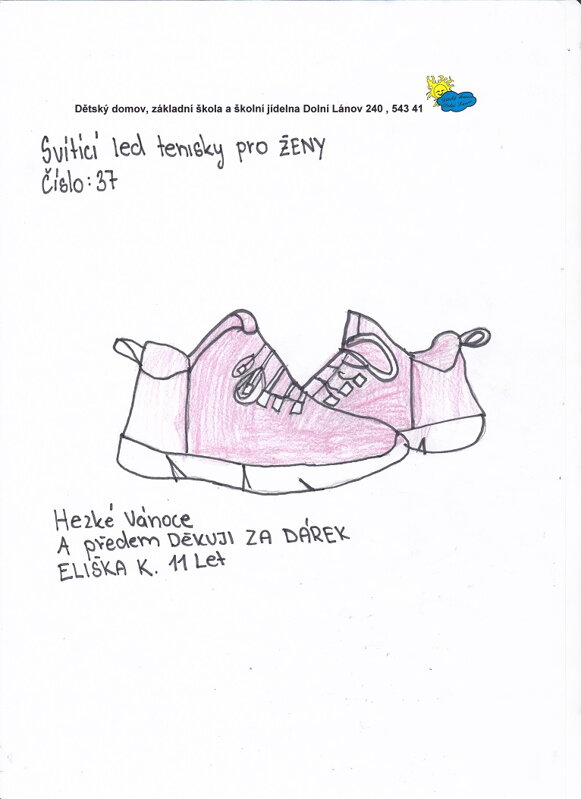 Dětský domov, základní škola a školní jídelna Dolní Lánov 240 , 543 41
Svítící led tenisky pro ŽENY
Číslo: 37
Hezké Vánoce
A předem DĚKUJI ZA DÁREK
ELIŠKA K. 11 Let